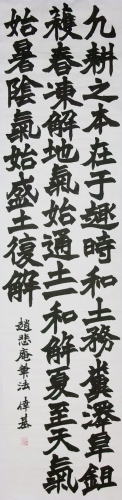 凢耕之本在于趣時和土務糞澤旱鉏
穫春凍解地氣始通土一和解夏至天氣
始暑陰氣始盛土復解
趙悲庵筆法 偉基